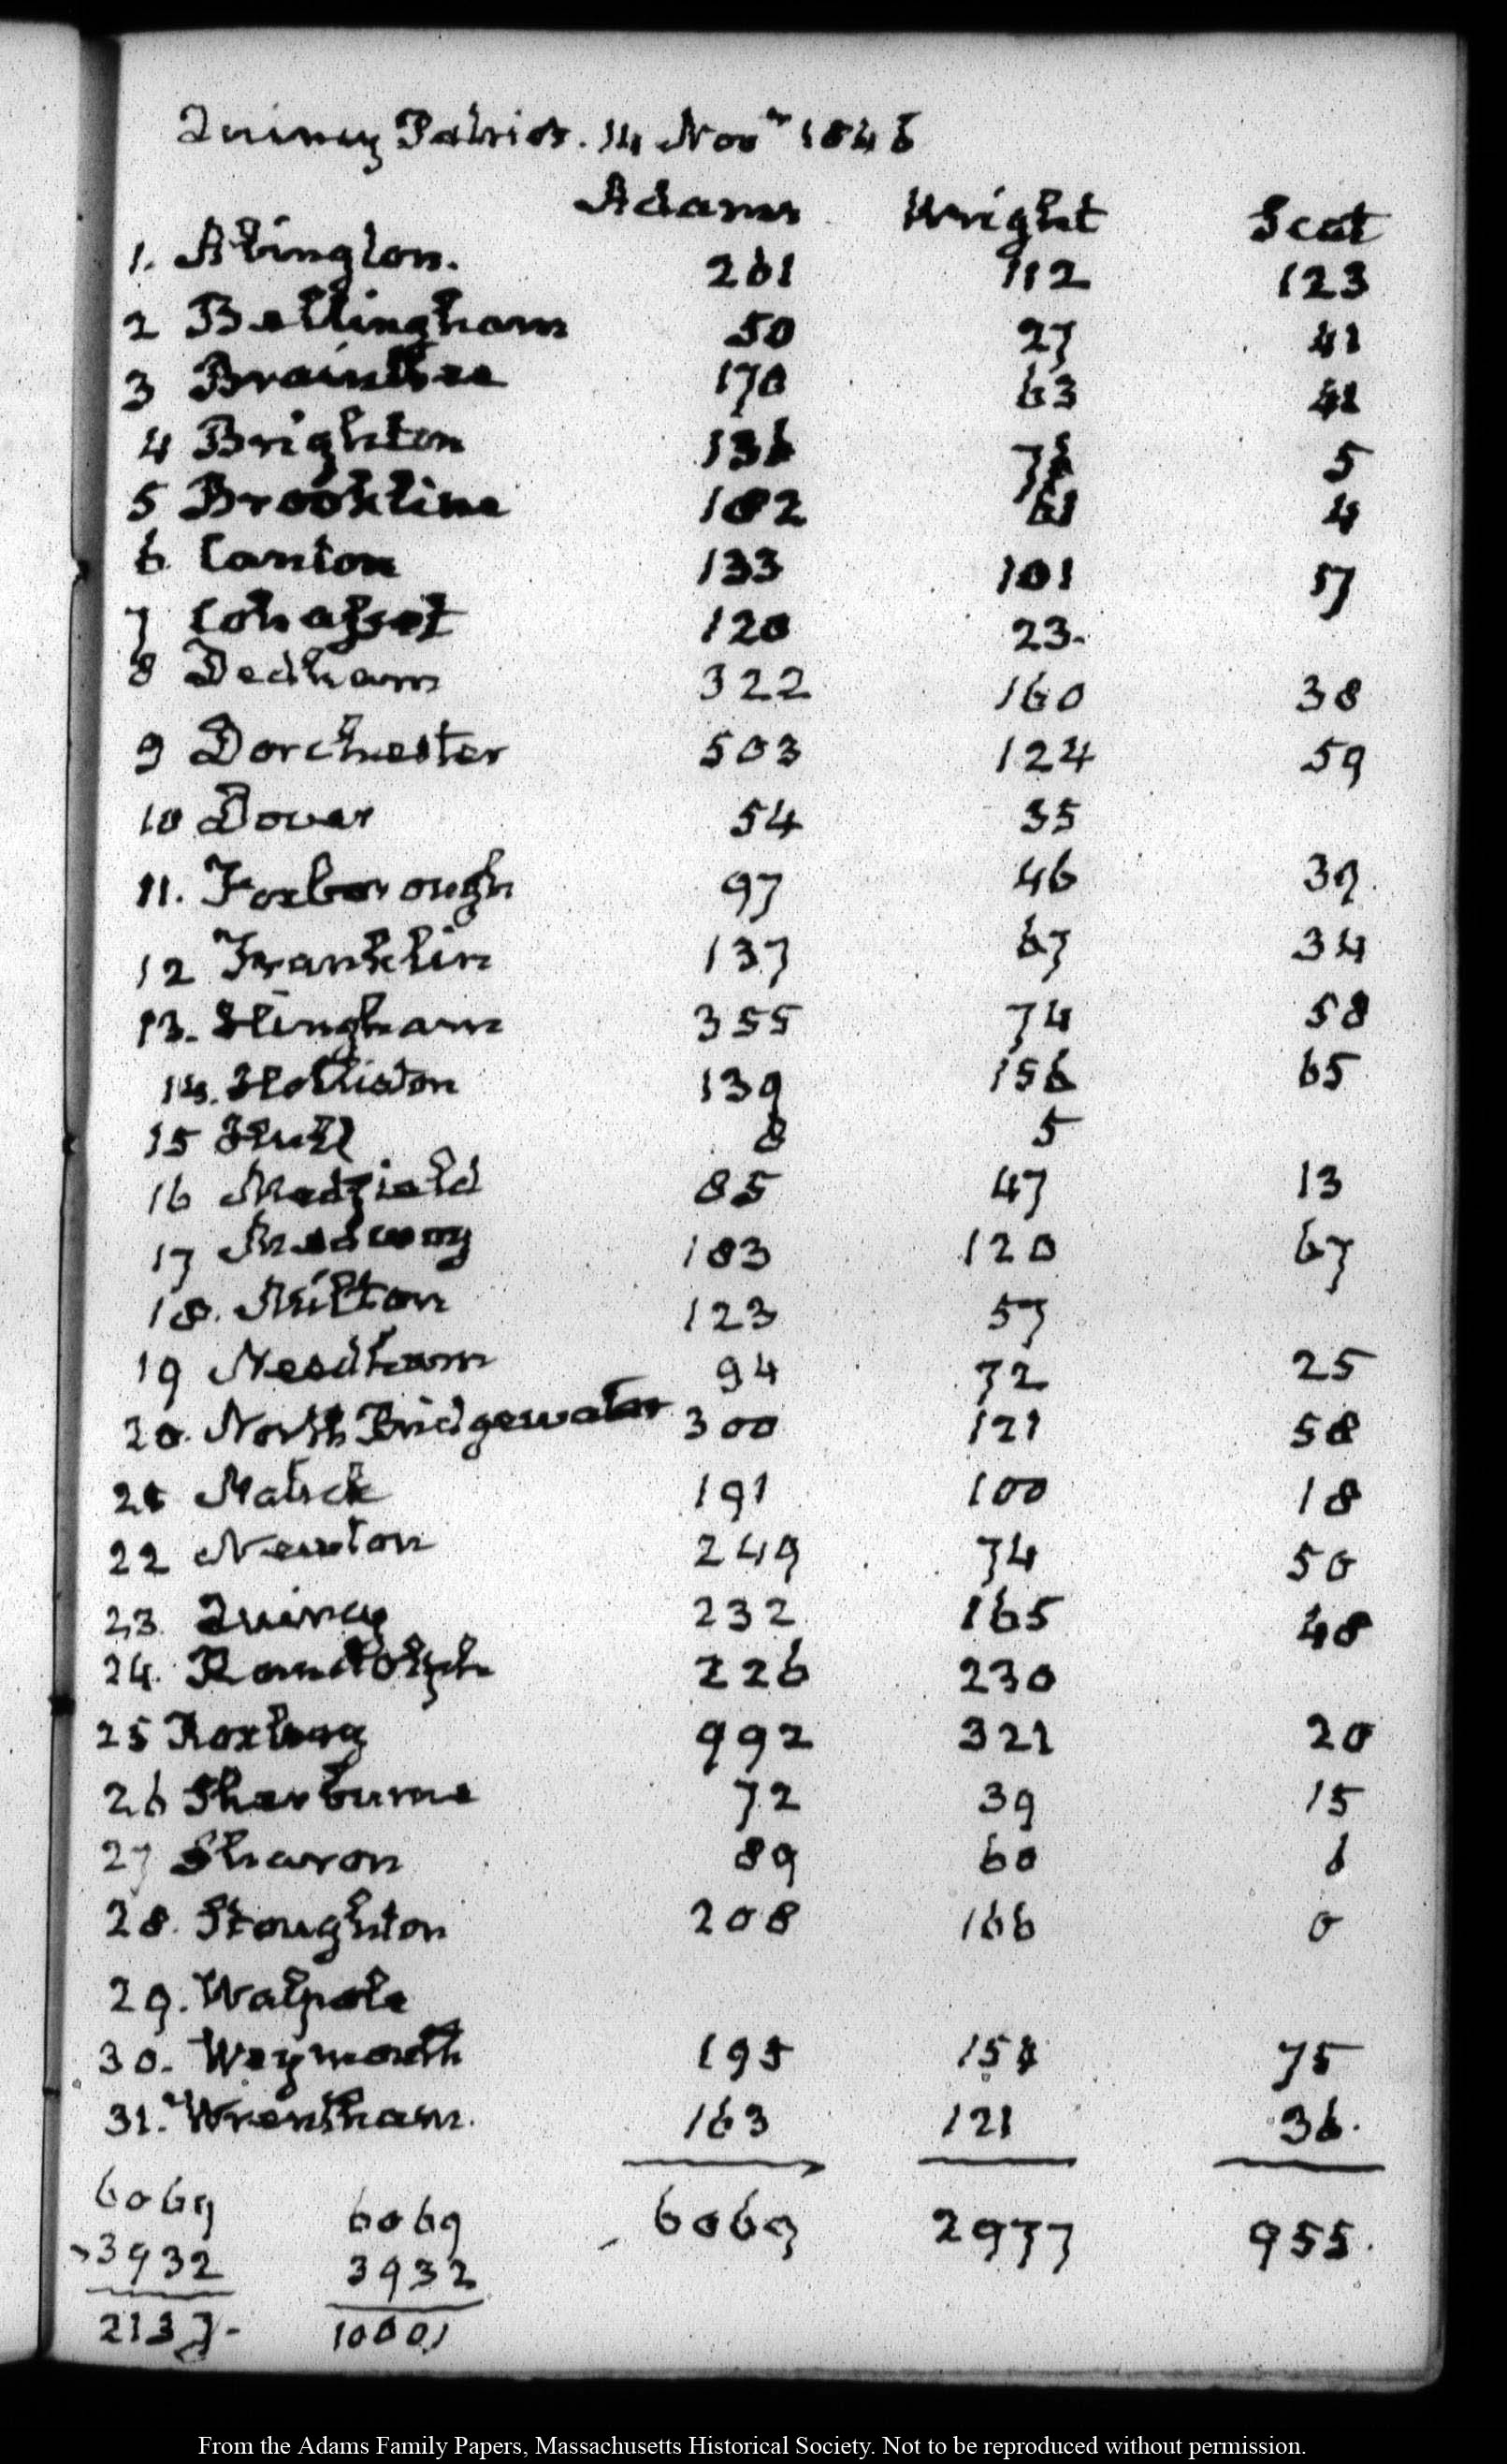 Quincy Patriot. 14 Novr 1846
Adams Wright Scat
1. Abington. 261 112 123
2 Bellingham 50 27 41
3 Braintree 170 63 41
4 Brighton 136 75
5
5 Brookline 182 61 4
6 Canton 133 101 17
7 Cohasset 120 23.
8 Dedham 322 160 38
9 Dorchester 503 124 59
10 Dover 54 35
11. Foxborough 97 46 39.
12 Franklin 137 67 34
13. Hingham 355 74 58
14. Holliston 139 156 65
15 Hull 8 5
16 Medfield 85 47 13
17 Medway 183 120 67
18. Milton 123 57
19 Needham 94 72 25
20. North Bridgewater 300 121 58
21 Natick 191 100 18
22 Newton 249 74 50
23. Quincy 232 165 48
24. Randolph 226 230
25 Roxbury 992 321 20
26 Sherburne 72 39 15
27 Sharon 89 60 6
28. Stoughton 208 166 0
29. Walpole
30. Weymouth 195 154 75
31. Wrentham. 163 121 36.
6069 6069 6069 2977 955.
3932 3932
2137- 10001
From the Adams Family Papers, Massachusetts Historical Society. Not to be reproduced without permission.